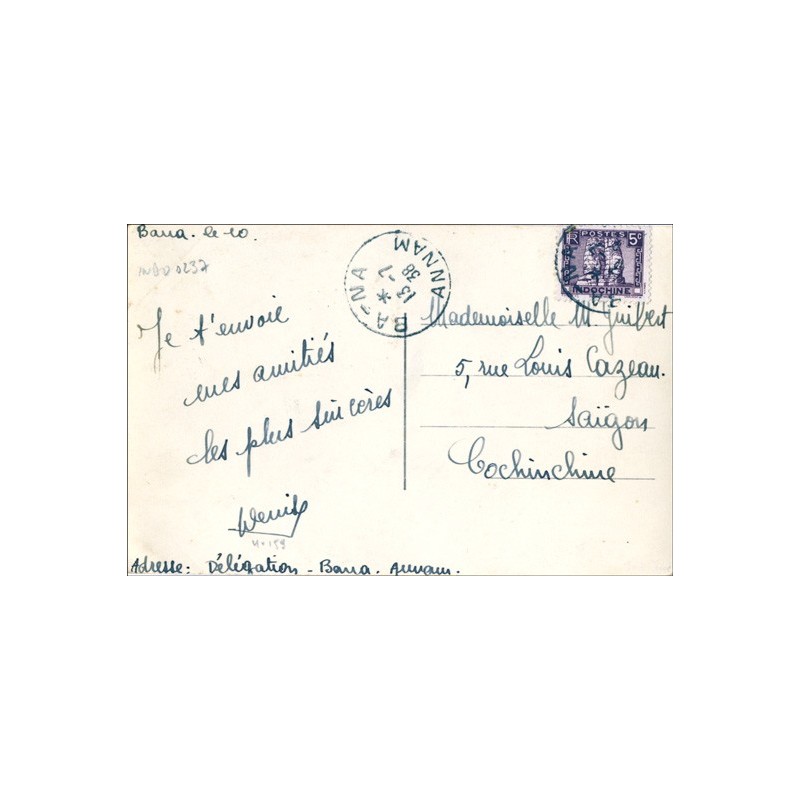 Bana. le 10.
INDO 0237
BA-NA
13 - 7
38
ANNAM
POSTES 5c
RF
INDOCHINE
Je t'envoie
mes amitiés
les plus sincères
Denise
Mademoiselle M. Guibert
5, rue Louis Cazeau.
Saïgon
Cochinchine
Adresse: Délégation - Bana. Annam.